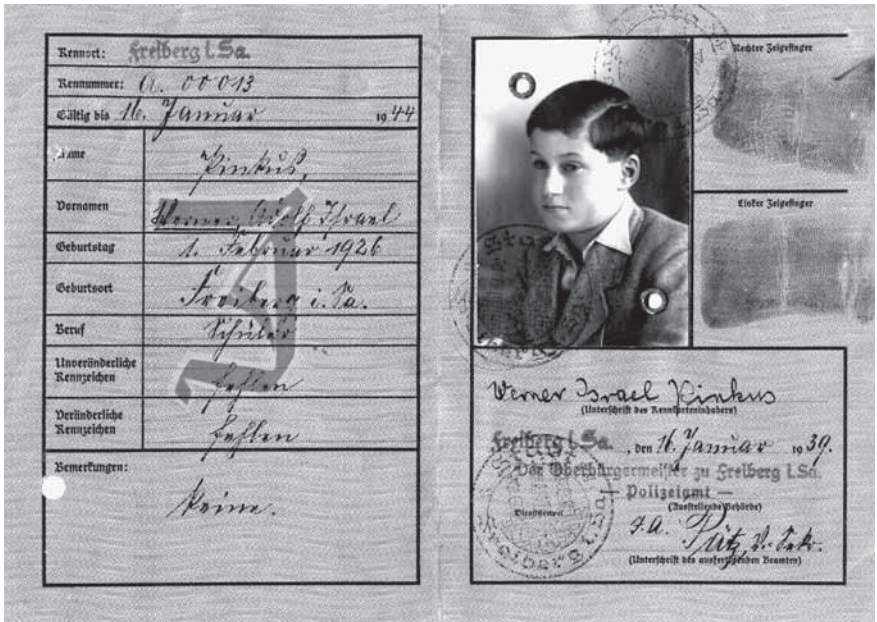 Kennort: Freiberg i. Sa.
Kennummer: A. 00013
Gültig bis 16. Januar 1944
Name Pinkuß,
Vornamen Werner, Adolf Israel
Geburtstag 1. Februar 1926
Geburtsort Freiberg i. Sa.
Beruf Schüler
Unveränderliche
Kennzeichen fehlen
Veränderliche
Kennzeichen fehlen
Bemerkungen:
Keine.
J
Rechter Zeigefinger
Linker Zeigefinger
Werner Israel Pinkus
(Unterschrift des Kennkarteninhabers)
Freiberg i. Sa., den 16. Januar 1939.
Der Oberbürgermeister zu Freiberg i. Sa.
— Polizeiamt —
(Ausstellende Behörde)
Dienststempel
J. A.
(Unterschrift des ausfertigenden Beamten)